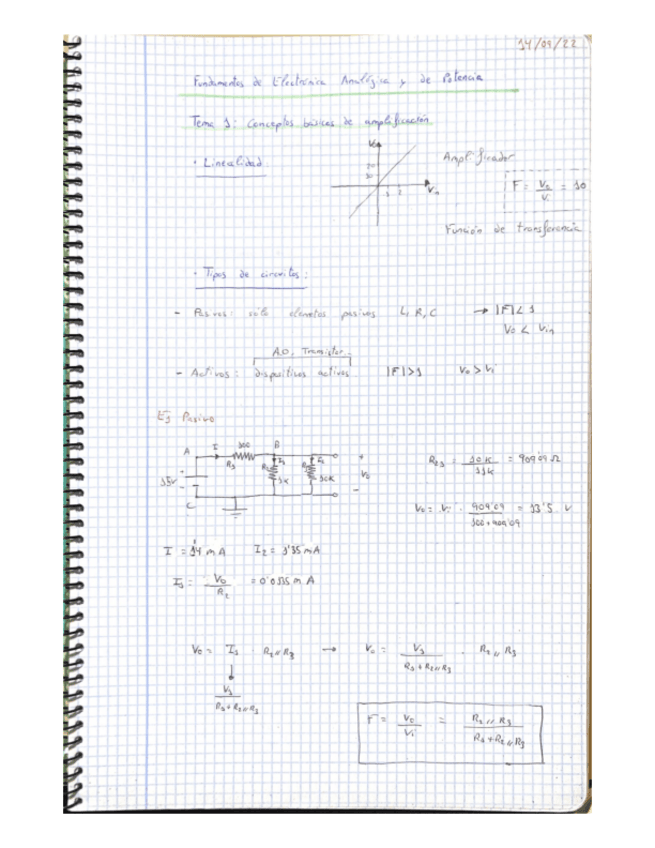 14/09/22
Fundamentos de Electrónica Analógica y de Potencia
Tema 1: Conceptos básicos de amplificación
· Linealidad
Vo
20
10
1 2
Vin
Amplificador
F = Vo / Vi = 10
Función de transferencia
· Tipos de circuitos:
- Pasivos: sólo elementos pasivos L, R, C → |F| < 1
Vo < Vin
A.O, Transistor
- Activos: dispositivos activos |F| > 1 Vo > Vi
Ej Pasivo
A I 100 B
R1 R2 I2 1K I3 10K
15V
C
+ Vo -
= 10K / 11K = 909'09 Ω
Vo = Vi · 909'09 / 100 + 909'09 = 13'5 V
I = 14 mA I2 = 1'35 mA
= Vo / R2 = mA
Vo = · R2 // R3 → Vo = / R1 + R2 // R3 · R2 // R3
/ R1 + R2 // R3
F = Vo / Vi = R2 // R3 / R1 + R2 // R3